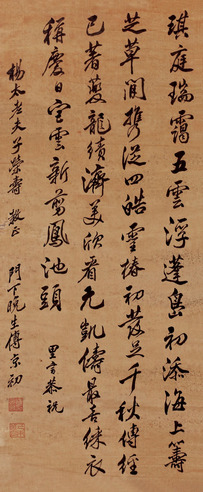 琪庭瑞靄五雲浮蓬島初添海上籌
芝草閒携從四皓靈椿初足千秋傳經
已著夔龍績濟美欣看元凱儔最喜綵衣
稱慶日雲新剪鳳池頭 里言恭祝
楊太老夫子榮壽 教正 門下晚生傅京初